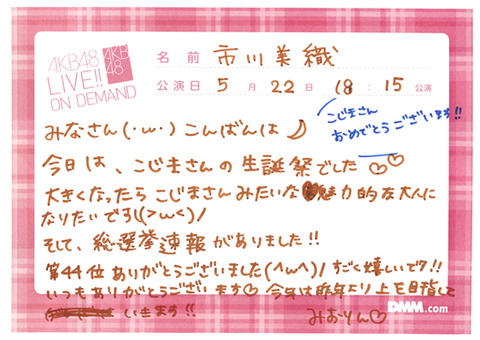 AKB48
LIVE!!
ON DEMAND
AKB
48
名前 市川美織
公演日 5月22日 18:15公演
こじまさん
おめでとうございます!!
みなさん(・ω・)こんばんは
今日は、こじまさんの生誕祭でした♡♡
大きくなったらこじまさんみたいな魅力的な大人に
なりたいです!(>ω<)/
そして、総選挙速報がありました!!
第44位ありがとうございました(^ω^)/すごく嬉しいです!!
いつもありがとうございます♡今年は昨年より上を目指して
いきます!!
みおりん♡
DMM.com